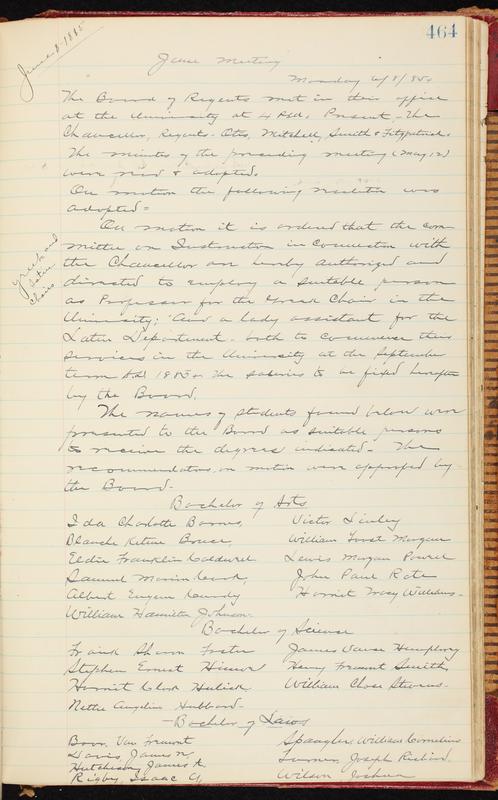 464
June 8 1885
June Meeting
Monday 6/8/85.
The Board of Regents met in their office
at the University at 4 P.M. Present, The
Chancellor, Regents - Otis, Mitchell, Smith & Fitzpatrick.
The minutes of the preceding meeting (May, 12)
were read & adopted.
On motion the following resolution was
adopted =
On motion it is ordered that the com
mittee on Instruction in connection with
the Chancellor are hereby authorized and
Greek and
Latin
Chairs
directed to employ a suitable person
as Professor for the Greek Chair in the
University; And a lady assistant for the
Latin Department - both to commence their
services in the University at the September
term A.D. 1885 - the salaries to be fixed hereafter
by the Board.
The names of students found below were
presented to the Board as suitable persons
to receive the degrees indicated - The
recommendations, on motion were approved by
the Board -
Bachelor of Arts
Ida Charlotte Barnes, Victor Linley
Blanche Ketene Bruce, William Frost Morgan
Franklin Caldwell Lewis Morgan Powell
Samuel Marion Cook, John Paul
Albert Eugene Harriet
William Hamilton Johnson -
Bachelor of Science
Frank Sharon Foster James Vance Humphrey
Stephen Ernest Henry Fremont Smith
Harriet Clark William Chase Stevens -
Nettie Angeline Hubbard -
- Bachelor of Laws
Van Fremont Spangler, William Cornelius
Davis, James N, Joseph Richard
Hutcheson, James A. Wilson Joshua
Rigby, Isaac